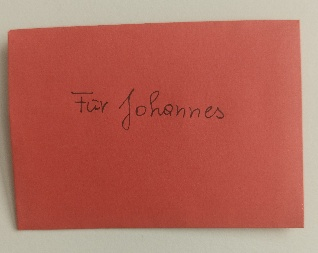 Für Johannes